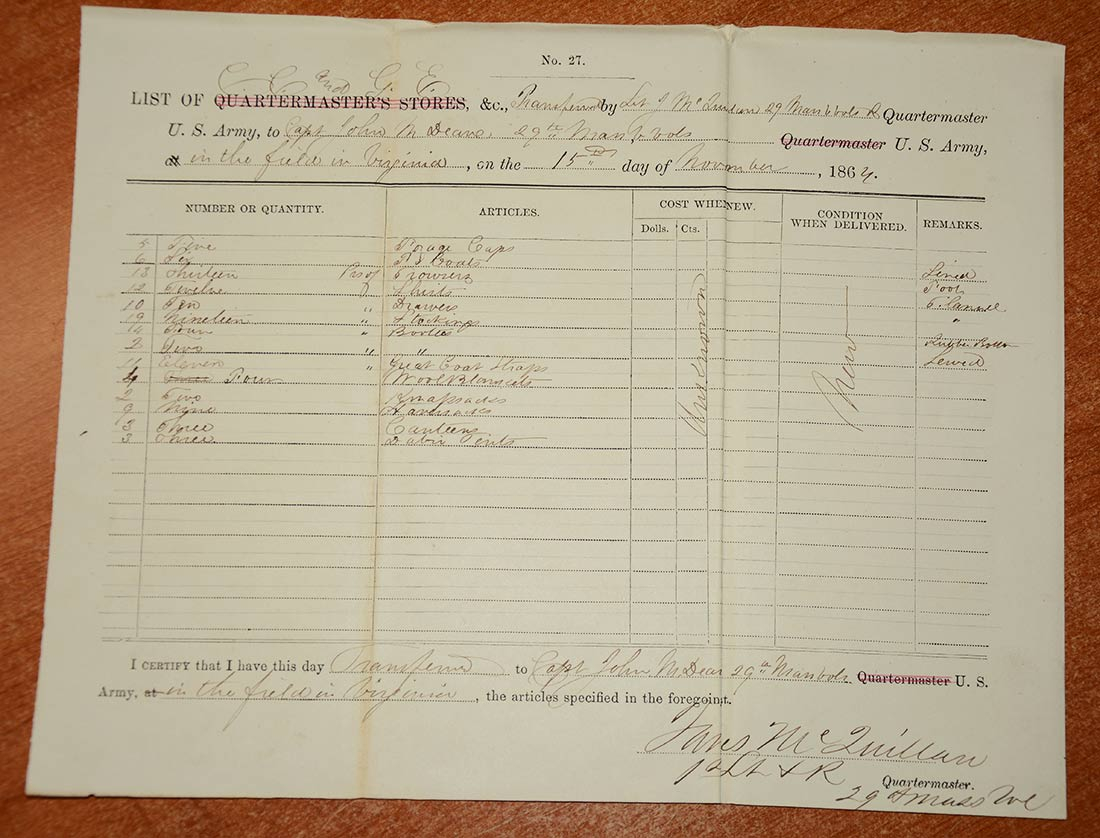 No. 27.
C. C. and G. E.
LIST OF QUARTERMASTER'S STORES, &c., Transferred by Lt J McQuillan 29 Mass Vols R Quartermaster
U. S. Army, to Capt John M Deane, 29th Mass Vols Quartermaster U. S. Army,
at in the field in Virginia, on the 15th day of November, 1864.
NUMBER OR QUANTITY. ARTICLES. COST WHEN NEW. CONDITION WHEN DELIVERED. REMARKS.
Dolls. Cts.
5 Five Forage Caps
6 Six Coats
13 Thirteen Prs of Trowsers Lined
12 Twelve Shirts
10 Ten " Drawers Flannel
19 Nineteen " Stockings "
14 Four " Bootees
2 Two " " Sewed
11 Eleven Great Coat Straps
4 Four Wool Blankets
2 Two Knapsacks
9 Nine Haversacks
3 Three Canteens
3 Three Tents
Unknown
New
I CERTIFY that I have this day Transferred to Capt John M Deane 29th Mass Vols Quartermaster U. S.
Army, at in the field in Virginia, the articles specified in the foregoing list.
James McQuillan
1st Lt & R Quartermaster.
29th Mass Vol